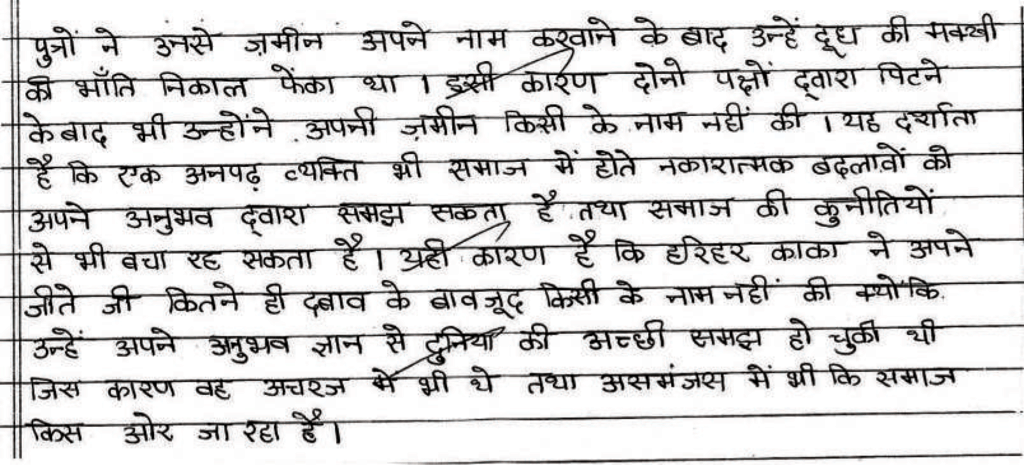 पुत्रों ने उनसे ज़मीन अपने नाम करवाने के बाद उन्हें दूध की मक्खी
की भाँति निकाल फेंका था । इसी कारण दोनो पक्षों द्वारा पिटने
के बाद भी उन्होंने अपनी ज़मीन किसी के नाम नहीं की । यह दर्शाता
है कि एक अनपढ़ व्यक्ति भी समाज में होते नकारात्मक बदलावों को
अपने अनुभव द्वारा समझ सकता है तथा समाज की कुनीतियों
से भी बचा रह सकता है । यही कारण है कि हरिहर काका ने अपने
जीते जी कितने ही दबाव के बावजूद किसी के नाम नहीं की क्योंकि
उन्हें अपने अनुभव ज्ञान से दुनिया की अच्छी समझ हो चुकी थी
जिस कारण वह अचरज में भी थे तथा असमंजस में भी कि समाज
किस ओर जा रहा है ।